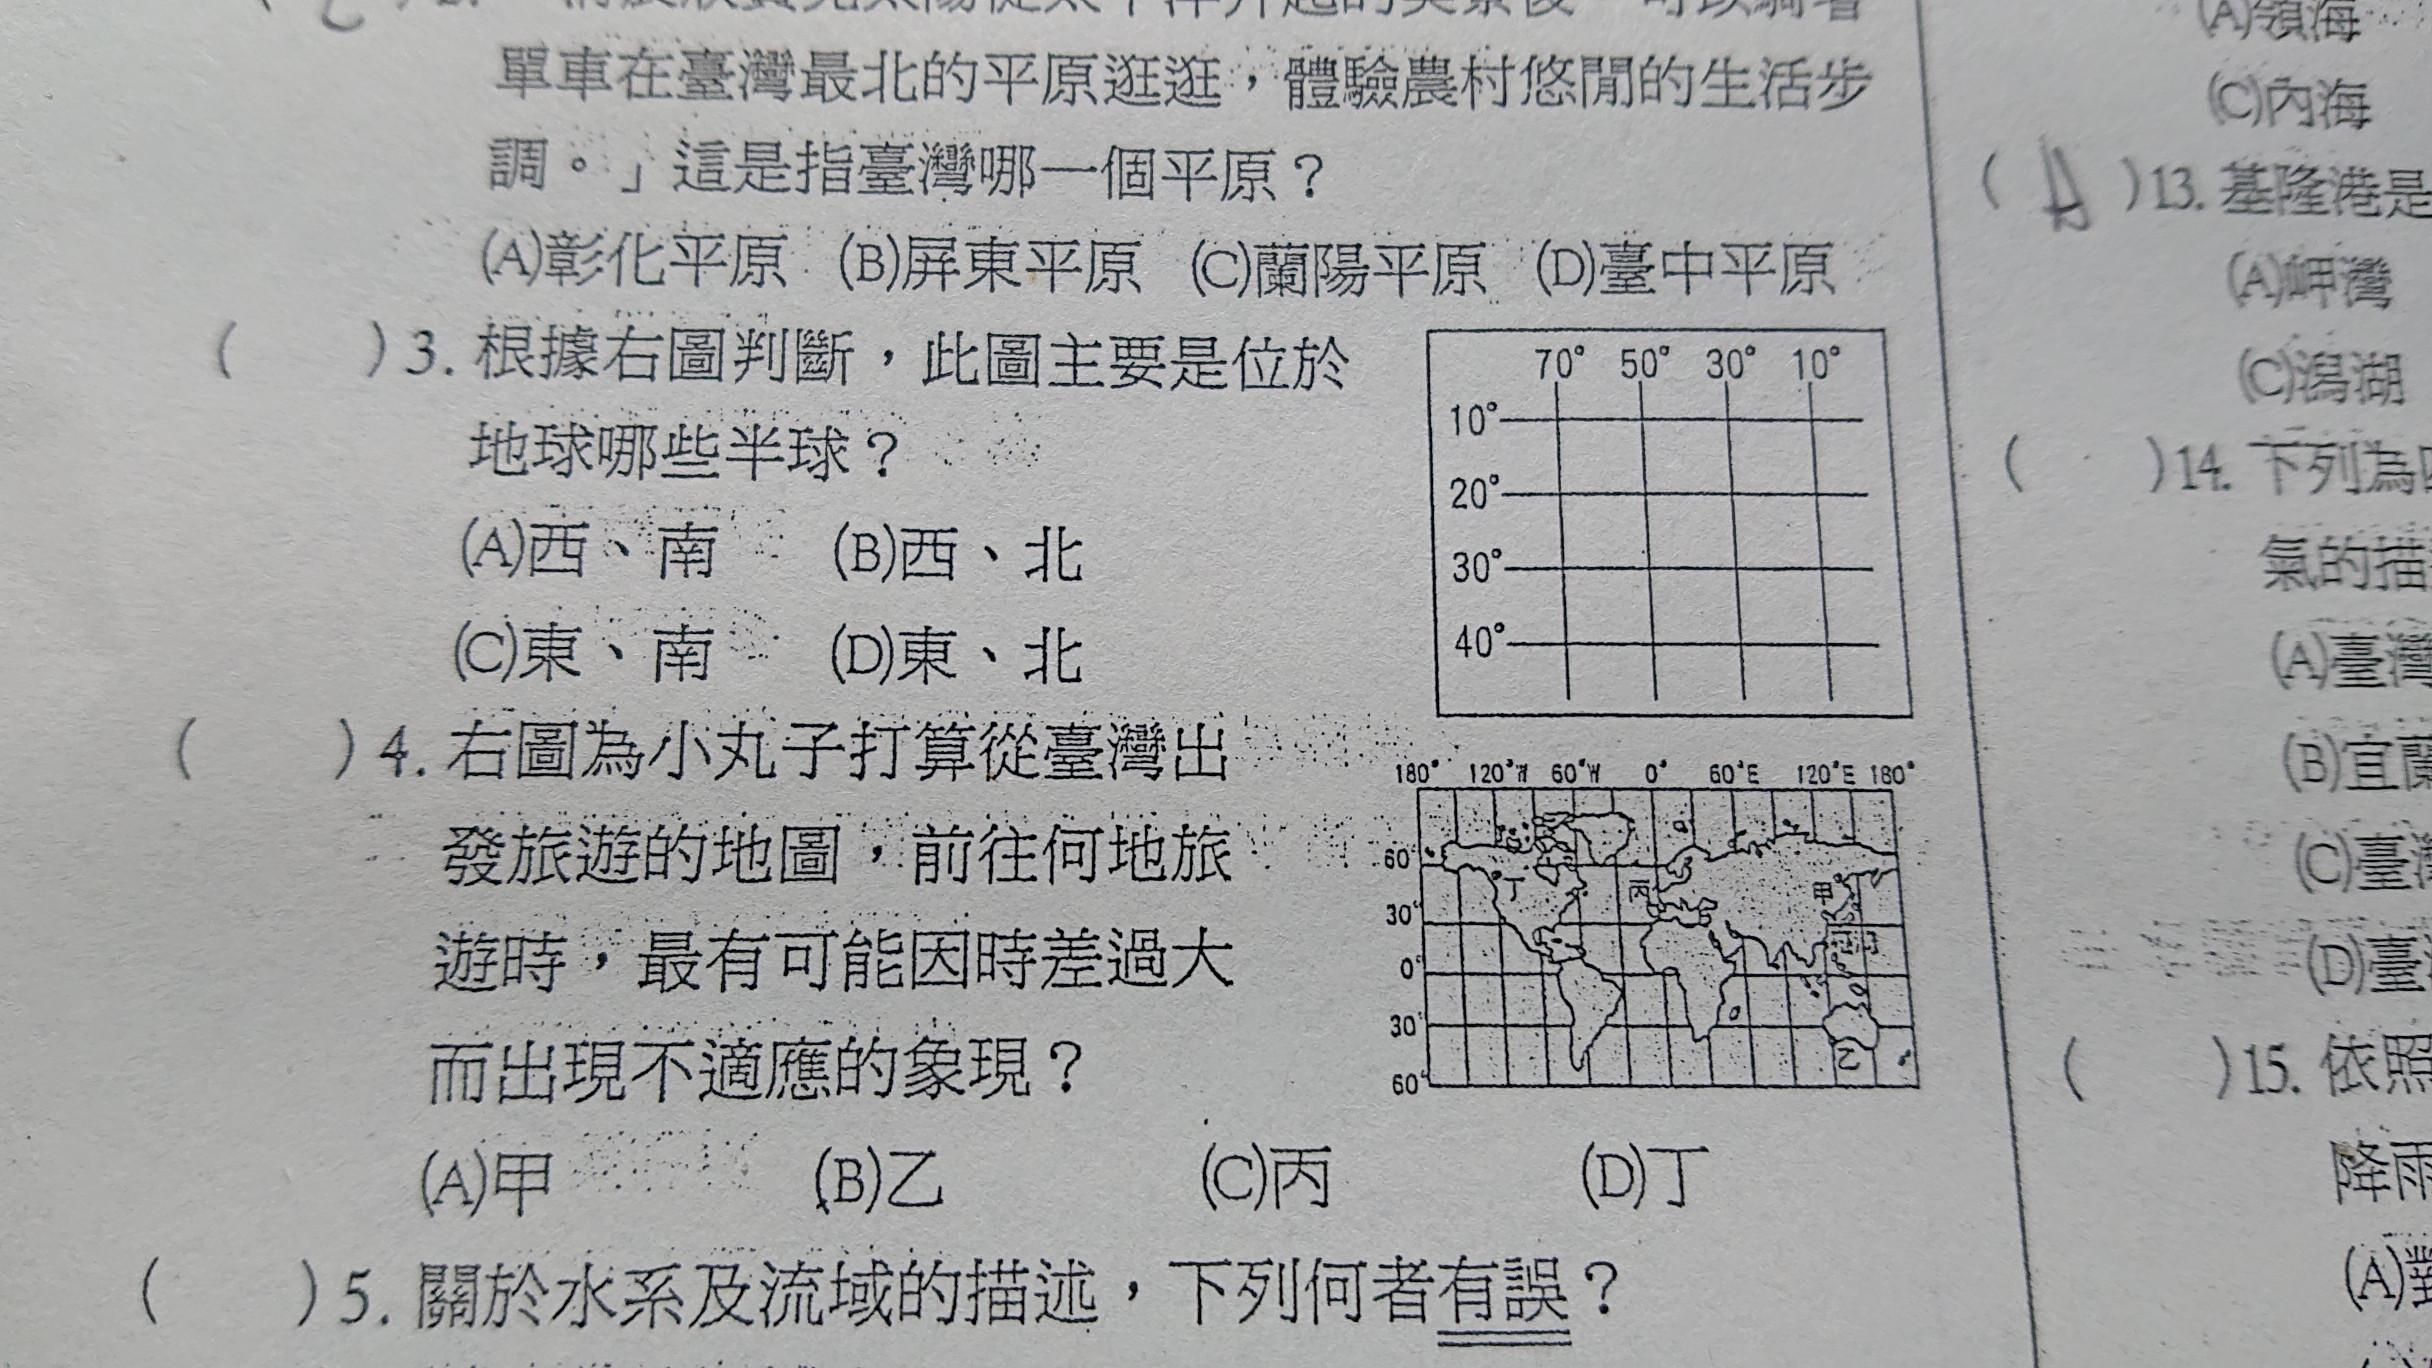 單車在臺灣最北的平原逛逛,體驗農村悠閒的生活步
調。」這是指臺灣哪一個平原?
(A)彰化平原 (B)屏東平原 (C)蘭陽平原 (D)臺中平原
( )3. 根據右圖判斷,此圖主要是位於
地球哪些半球?
(A)西、南 (B)西、北
(C)東、南 (D)東、北
70° 50° 30° 10°
10°
20°
30°
40°
( )4. 右圖為小丸子打算從臺灣出
發旅遊的地圖,前往何地旅
遊時,最有可能因時差過大
而出現不適應的象現?
(A)甲 (B)乙 (C)丙 (D)丁
180° 120°W 60°W 0° 60°E 120°E 180°
60°
30°
0°
30°
60°
丁 丙 甲
乙
( )5. 關於水系及流域的描述,下列何者有誤?
(A)領海
(C)內海
( A )13. 基隆港是
(A)岬灣
(C)潟湖
( )14. 下列為
氣的描
(A)臺灣
(B)宜蘭
(C)臺
(D)臺
( )15. 依照
降雨
(A)